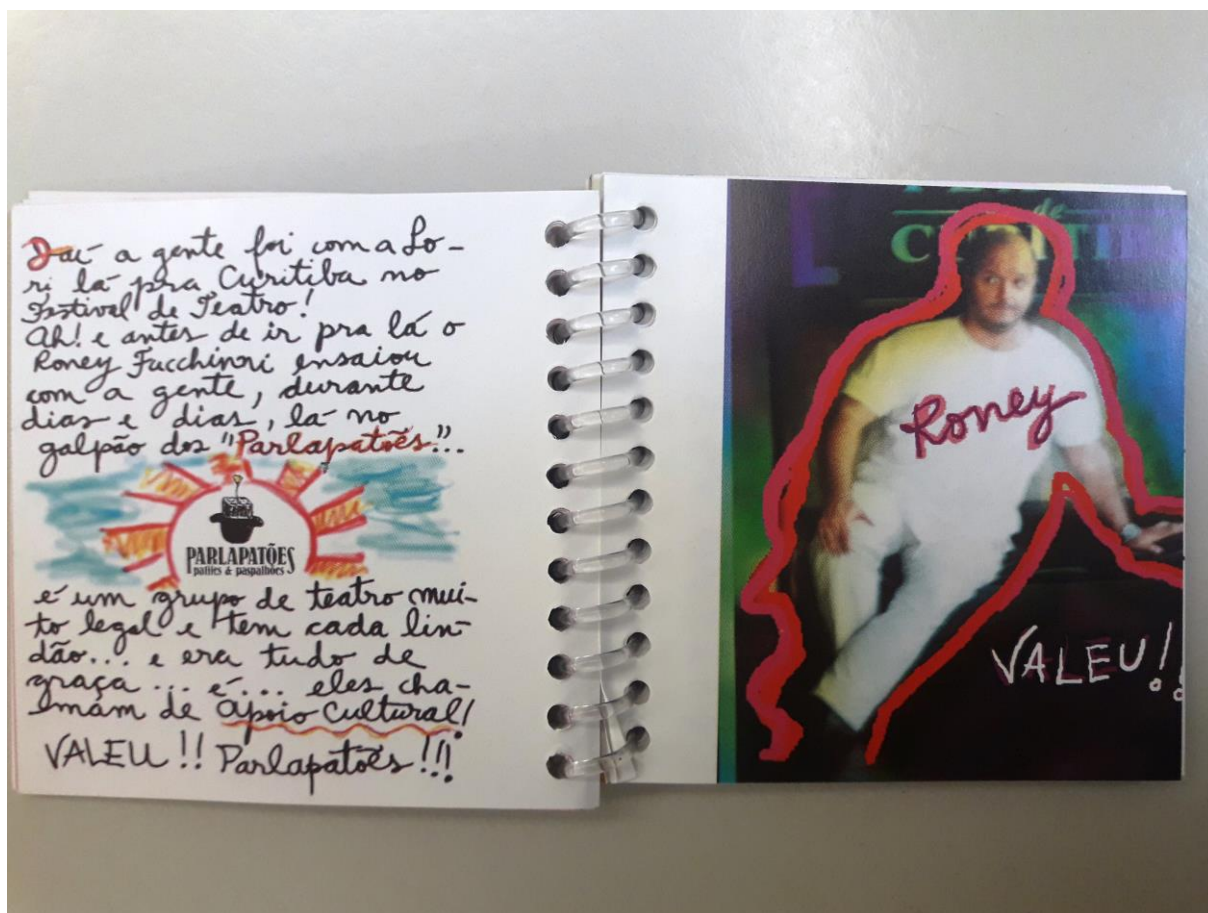 Daí a gente foi com a Lo-
ri lá pra Curitiba no
Festival de Teatro!
Ah! e antes de ir pra lá o
Roney Facchinni ensaiou
com a gente, durante
dias e dias, lá no
galpão dos "Parlapatões"...
PARLAPATÕES
patifes & paspalhões
é um grupo de teatro mui-
to legal e tem cada lin-
dão... e era tudo de
graça ... é... eles cha-
mam de apoio cultural!
VALEU!! Parlapatões!!!
de
Roney
VALEU!!